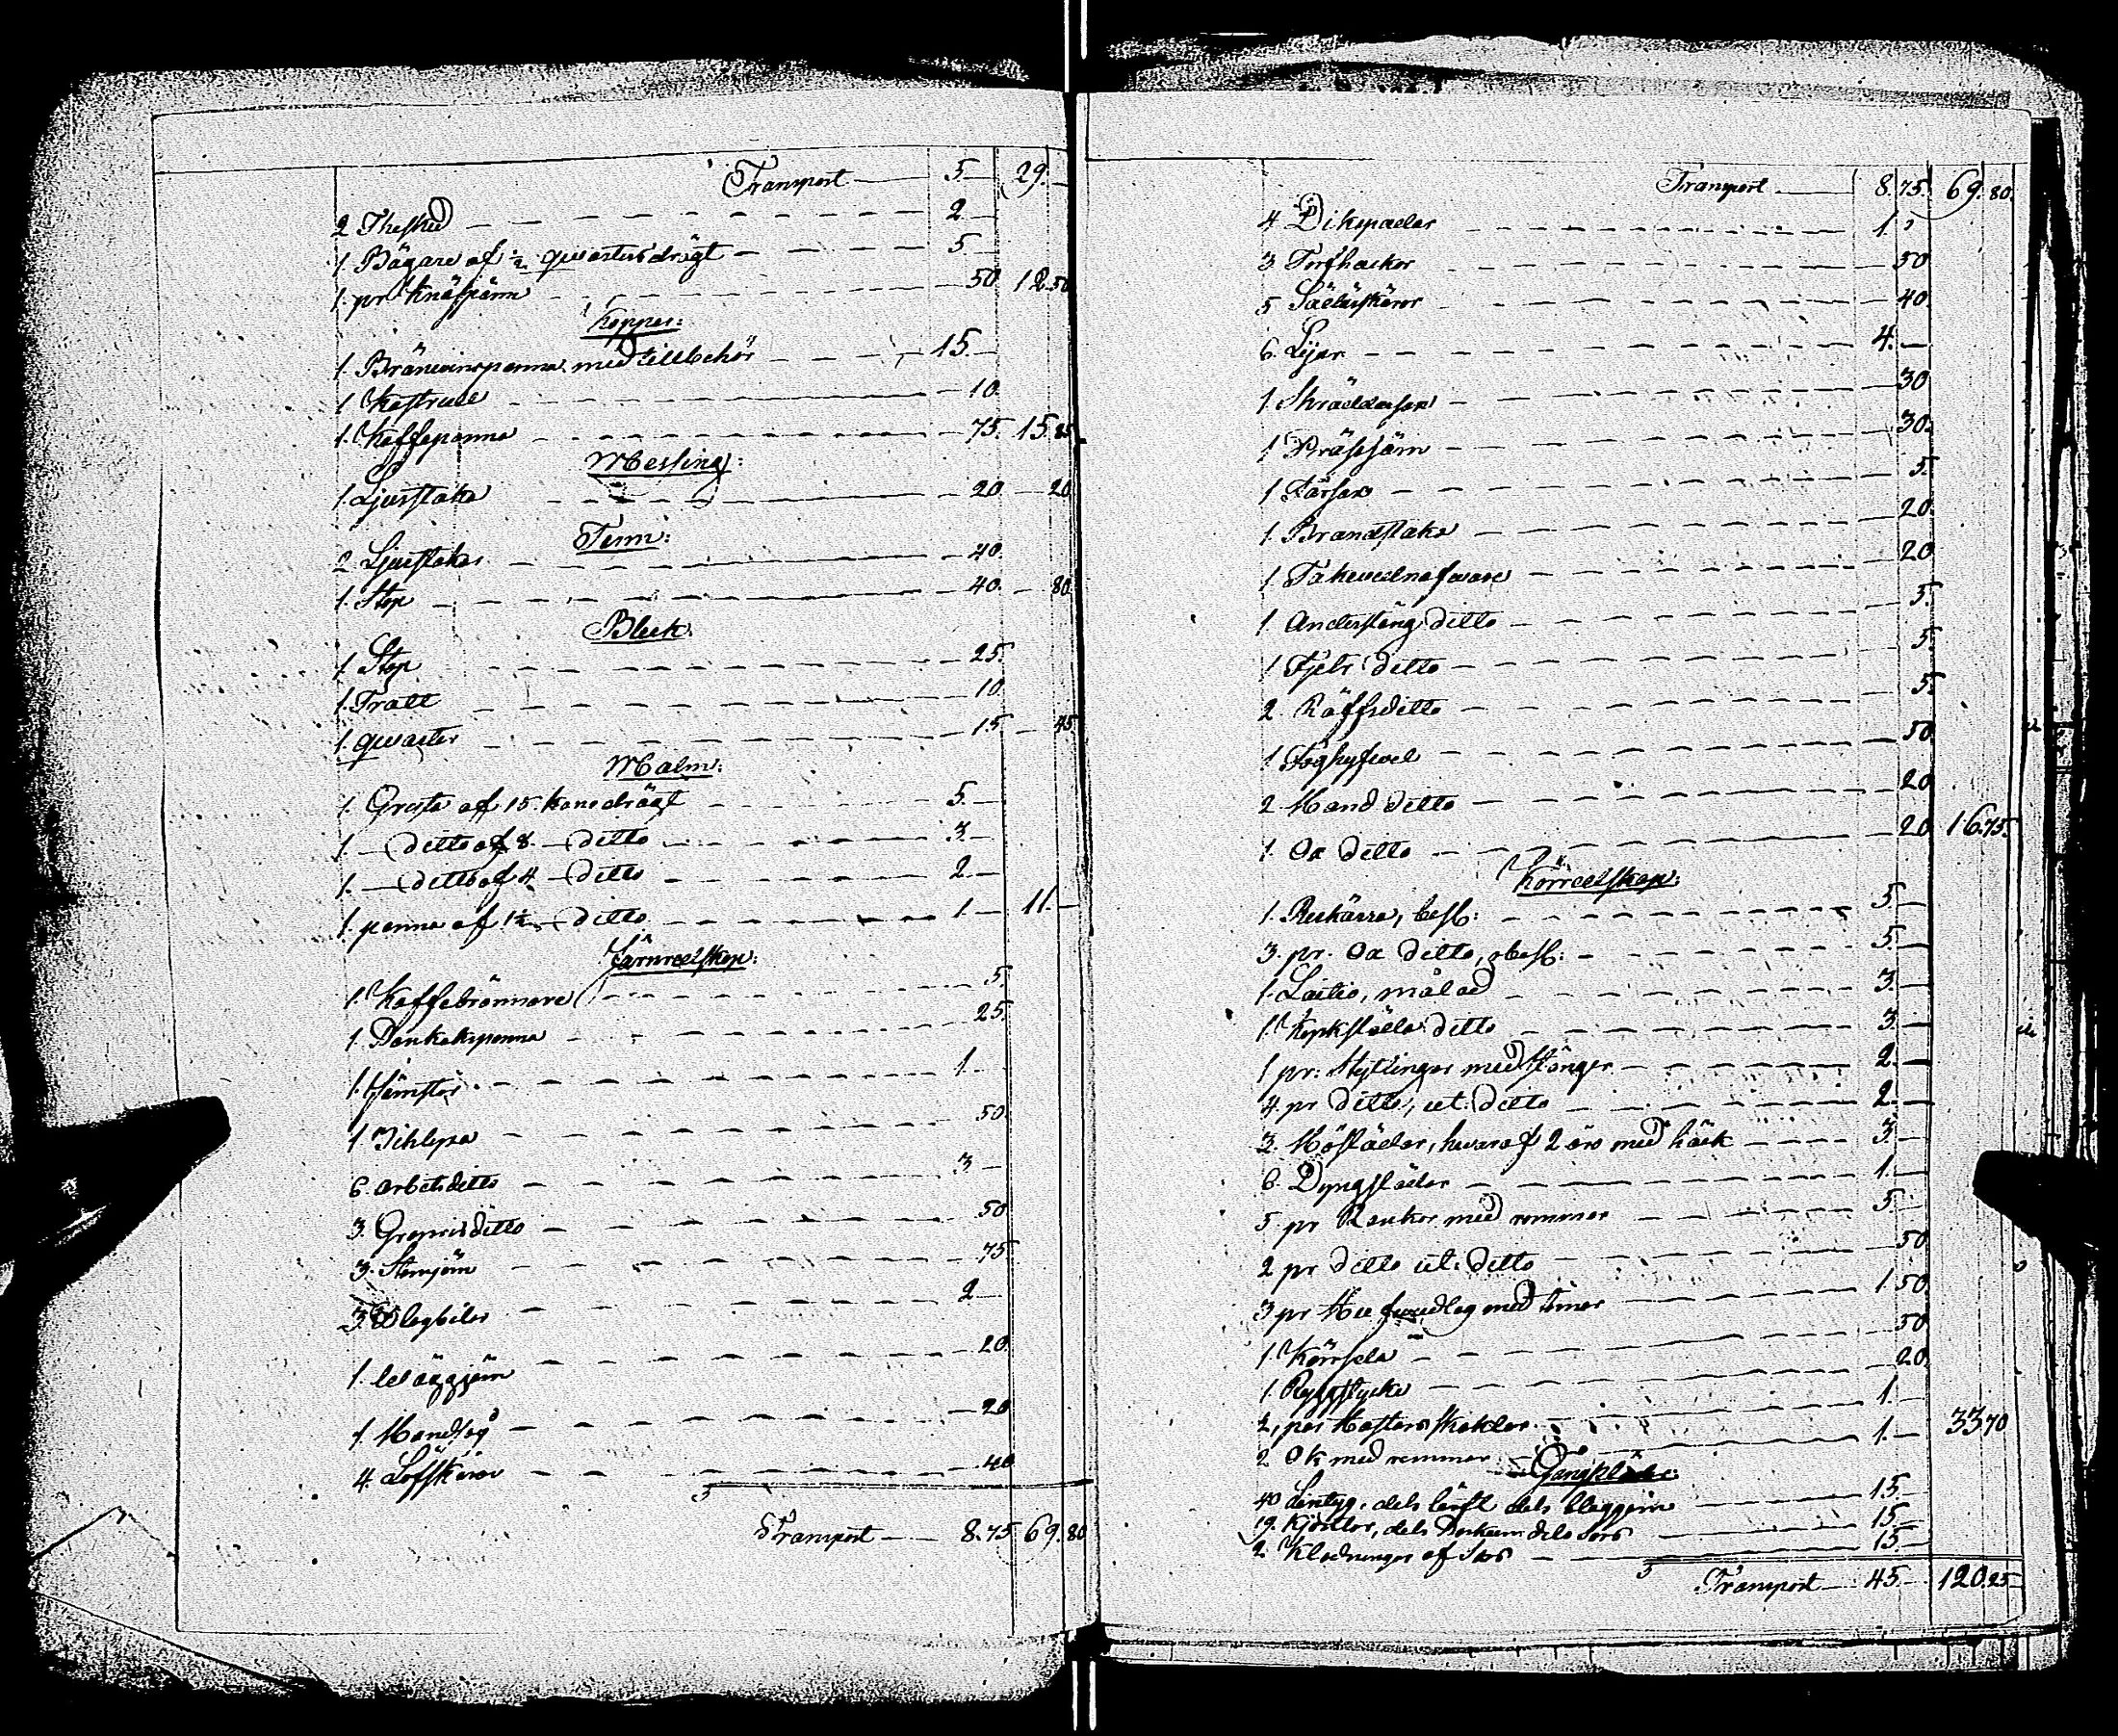 Transport — 5. — 29. —
2 Thesked — 2 —
1. Bägare af ½ qwarters drägt — 5 —
1. pr knäspänn — 50 12.50
Koppar:
1. Bränvinspanna med tillbehör — 15. —
1 Kastrull — 10
1. Kaffepanna — 75. 15.85
Messing:
1. Ljusstake — 20 — 20
Tenn:
2 Ljusstakar — 40.
1. Stop — 40. — 80
Bleck:
1. Stop — 25.
1. Tratt — 10
1. qwarter — 15 — 45
Malm:
1. Gryta af 15. kans drägt — 5. —
1. — ditto af 8. — ditto — 3 —
1. — ditto af 4 — ditto — 2 —
1. panna af 1½ — ditto — 1 — 11. —
Järnredskap:
1. Kaffebrännare — 5.
1. Pankakspanna — 25.
1. Järnstör — 1 —
1 — 50
6. arbetsditto — 3 —
3. ditto — 50
3. Stämjärn — 75
3. Slagbilor — 2 —
1. järn — 20.
1. Handsåg — 20
4. Löfskäror — 40
Transport — 8.75 69.80
Transport — 8.75. 69.80.
4 Dikspadar — 1.
3 Torfhackor — 50
5 Sädesskäror — 40
6. Liar — 4. —
1. Skräddarsax — 30
1 Prässjärn — 30.
1 Fårsax — 5.
1. Brandstake — 20.
1. nafvare — 20
1 Anderstång ditto — 5.
1 ditto — 5.
2 Räffsditto — 5.
1 Foghyfvel — 50
2 Hand ditto — 20
1. Ox ditto — 20 16.75.
Körredskap:
1. Reskärra, besl: — 5 —
3. pr. Ox ditto, obesl: — 5. —
1. målad — 3 —
1. Korksläda ditto — 3 —
1 pr: Styttingar med stänger — 2. —
4. pr ditto, ut. ditto — 2. —
3. Höslädor, hvaraf 2 äro med häck — 3 —
6. Dyngslädor — 1. —
5 pr Rankor med remmar — 5 —
2 pr ditto ut. ditto — 50
3 pr med tömar — 1.50
1. Körsela — 50
1. Ryggstycke — 20
2, par skaklar — 1. —
2 Ok med remmar — 1. — 33.70
Gångkläder:
40 Lintyg, dels lärft dels blaggarn — 15. —
19. Kjortlar, dels dels Sars — 15 —
2 Kladningar af Sars — 15. —
Transport — 45. — 120.25